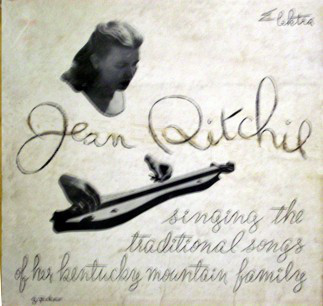 Elektra
Jean Ritchie
singing the
traditional songs
of her kentucky mountain family